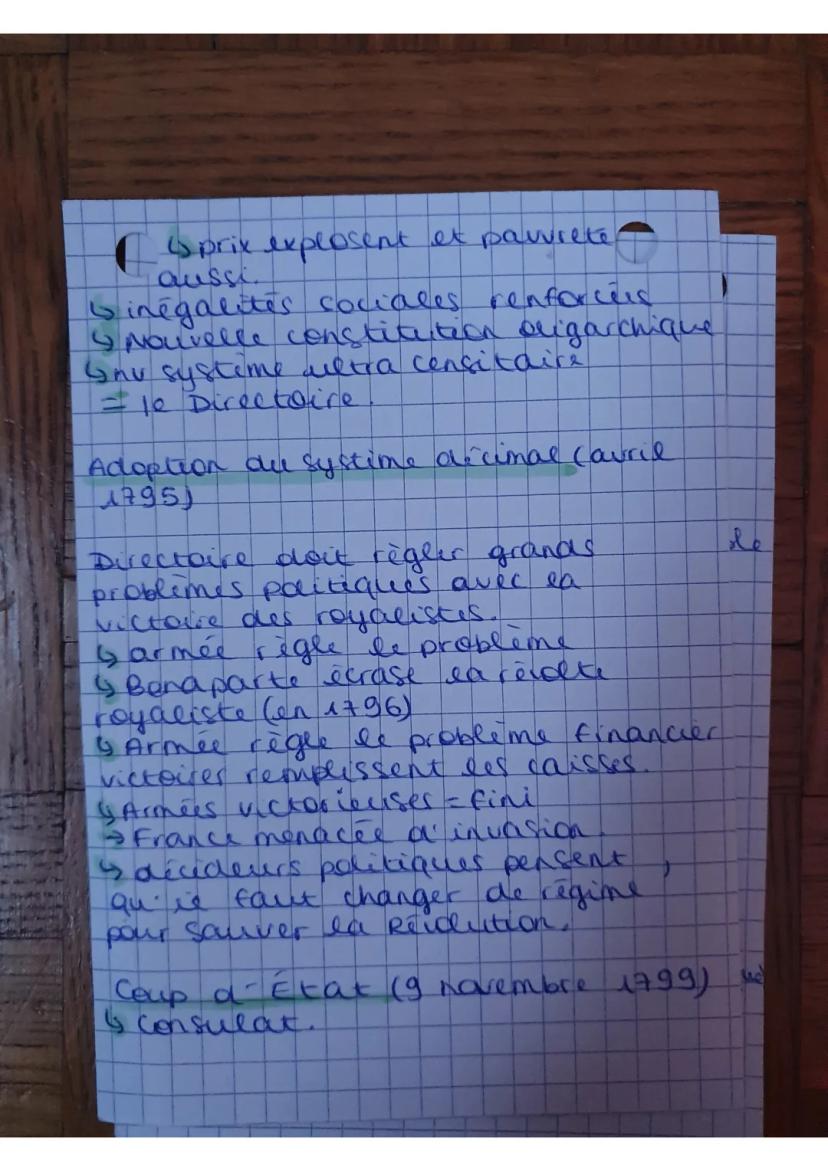 ↳ prix explosent et pauvreté
aussi.
↳ inégalités sociales renforcées
↳ Nouvelle constitution oligarchique
↳ nv système ultra censitaire
= le Directoire.
Adoption du système décimal (avril
1795)
Directoire doit régler grands
problèmes politiques avec la
victoire des royalistes.
↳ armée règle le problème
↳ Bonaparte écrase la révolte
royaliste (en 1796)
↳ Armée règle le problème financier
victoires remplissent les caisses.
↳ Armées victorieuses = fini
→ France menacée d'invasion.
↳ décideurs politiques pensent
qu'il faut changer de régime
pour sauver la Révolution.
Coup d'État (9 novembre 1799)
↳ Consulat.